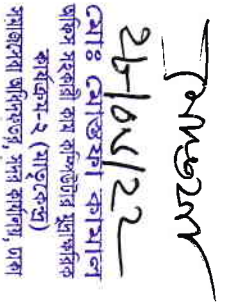 মোঃ মোস্তফা কামাল
অফিস সহকারী কাম কম্পিউটার মুদ্রাক্ষরিক
কার্যক্রম-২ (মাতৃকেন্দ্র)
সমাজসেবা অধিদফতর, সদর কার্যালয়, ঢাকা